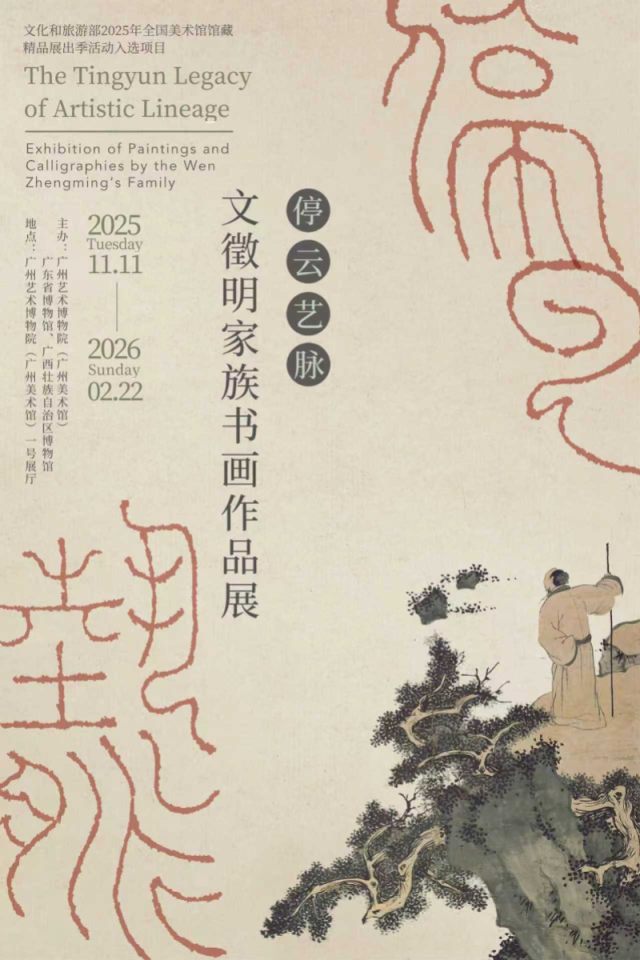 文化和旅游部2025年全国美术馆馆藏
精品展出季活动入选项目
The Tingyun Legacy
of Artistic Lineage
Exhibition of Paintings and
Calligraphies by the Wen
Zhengming's Family
停云艺脉
文徵明家族书画作品展
2025
Tuesday
11.11
2026
Sunday
02.22
主办：广州艺术博物院（广州美术馆）
广东省博物馆、广西壮族自治区博物馆
地点：广州艺术博物院（广州美术馆）一号展厅